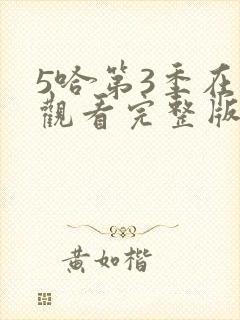 5哈第3季在
觀看完整版
黃如楷